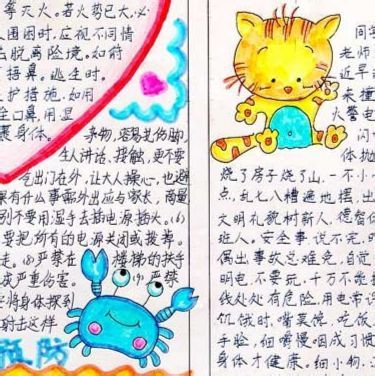 等灭火。若火势已大,必
人围困时,应视不同情
去脱离险境。如前
捂鼻。逃生时。
护措施,如用
住口鼻,用湿
裹身体。
杂物,容易扎伤脚。
生人讲话、接触,更不要
气出门在外,让大人操心,也避
果有什么事需外出应与家长,商量
别不要用湿手去甜电源插座。(6)
要把所有的电源关闭或拔掉。
走。(8)严禁在 楼梯的扶手
成严重伤害。 (9)严禁
将身体探到
射击这样
预防
同学
老师
近早
来撞
火警电
问
体抛
烧了房子烧了山,一不小
点,乱七八糟遍地摆,出
文明礼貌树新人,德智
班人。安全事,说不完,时
偶出事故总难免,自觉
明电,不要玩,千万不能
线处处有危险,用电常识
饥饿时,嘴莫馋,吃饭
手脸,细嚼慢咽成习惯
身体才健康。细小物,